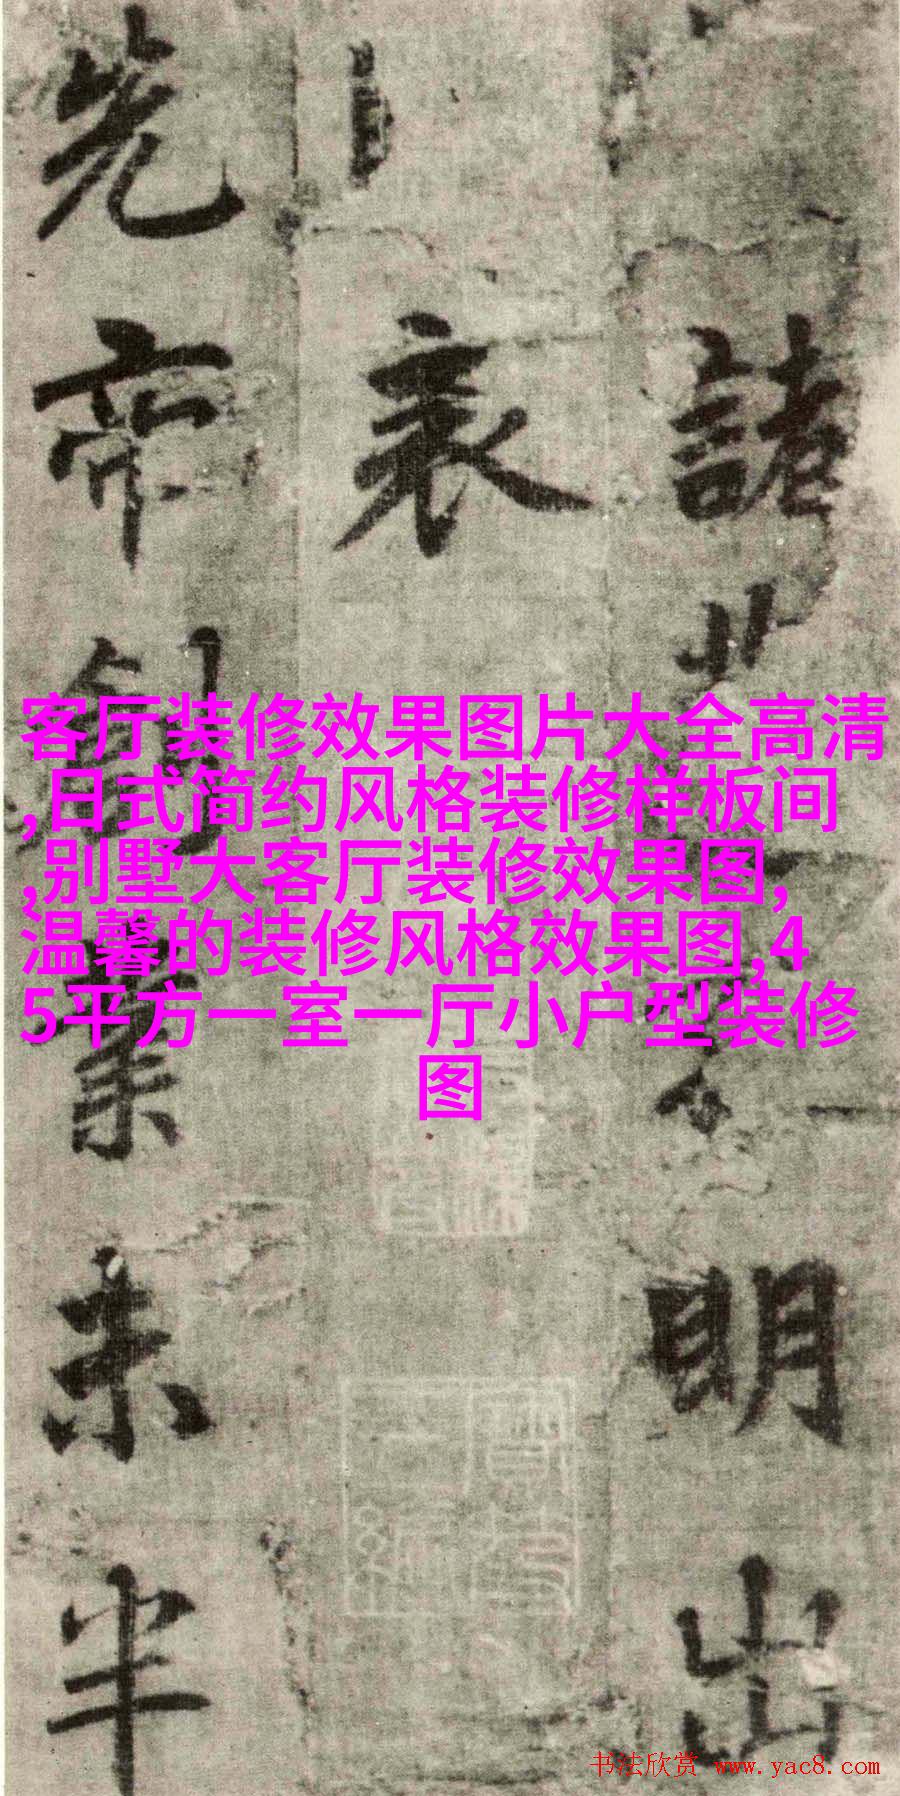 諸明出
表
先帝創業未半
客厅装修效果图片大全高清
,日式简约风格装修样板间
,别墅大客厅装修效果图,
温馨的装修风格效果图,4
5平方一室一厅小户型装修
图
书法欣赏 www.yac8.com